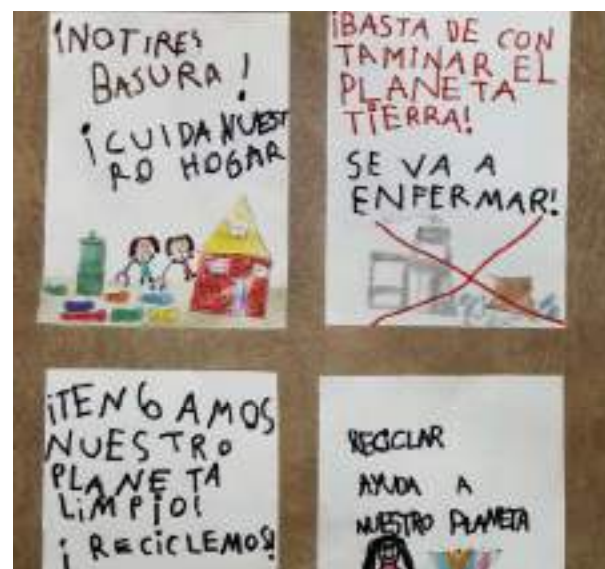 ¡NO TIRES
BASURA!
¡CUIDA NUEST
RO HOGAR
¡BASTA DE CON
TAMINAR EL
PLANETA
TIERRA!
SE VA A
ENFERMAR!
¡TENGAMOS
NUESTRO
PLANETA
LIMPIO!
¡RECICLEMOS!
RECICLAR
AYUDA A
NUESTRO PLANETA